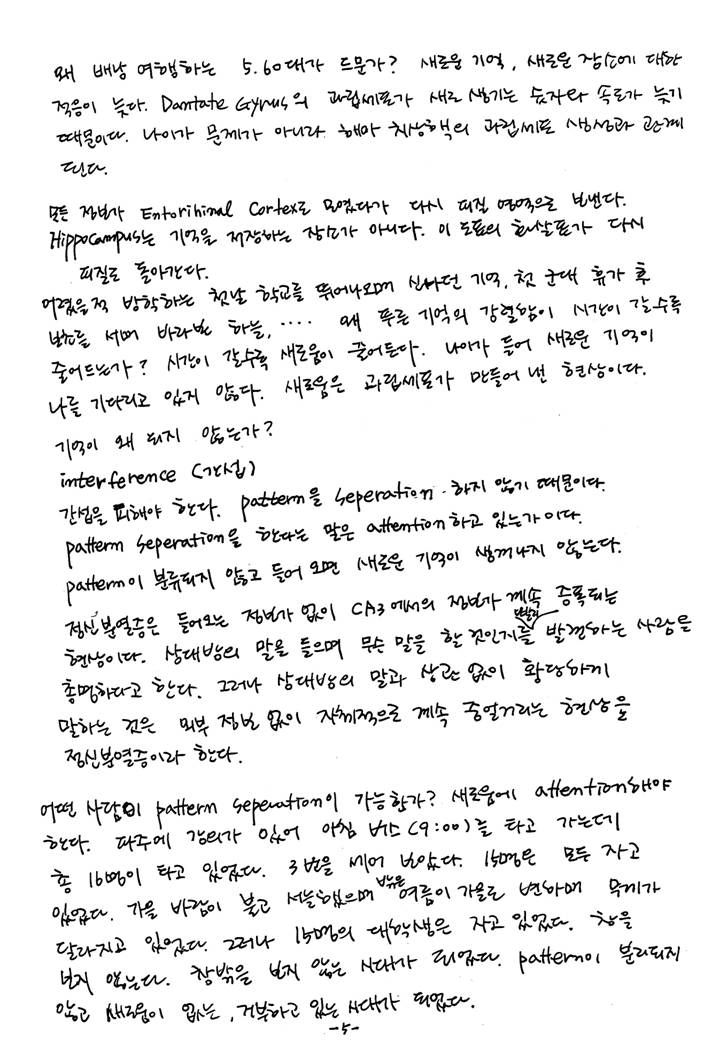 왜 배낭 여행하는 5.60대가 드문가? 새로운 기억, 새로운 장소에 대한
적응이 늦다. Dantate Gyrus의 과립세포가 새로 생기는 숫자와 속도가 늦기
때문이다. 나이가 문제가 아니라 해마 치상핵의 과립세포 생성과 관계
된다.
모든 정보가 Entorihinal Cortex로 모였다가 다시 피질 영역으로 보낸다.
Hippocampus는 기억을 저장하는 장소가 아니다. 이 도표의 화살표가 다시
피질로 돌아간다.
어렸을적 방학하는 첫날 학교를 뛰어나오며 신나던 기억, 첫 군대 휴가 후
보초를 서며 바라본 하늘, .... 왜 푸른 기억의 강렬함이 시간이 갈수록
줄어드는가? 시간이 갈수록 새로움이 줄어든다. 나이가 들어 새로운 기억이
나를 기다리고 있지 않다. 새로움은 과립세포가 만들어 낸 현상이다.
기억이 왜 되지 않는가?
interference (간섭)
간섭을 피해야 한다. pattern을 seperation 하지 않기 때문이다.
pattern seperation을 한다는 말은 attention하고 있는가이다.
pattern이 분류되지 않고 들어 오면 새로운 기억이 생겨나지 않는다.
정신분열증은 들어오는 정보가 없이 CA3에서의 정보가 계속 증폭되는
현상이다. 상대방의 말을 들으며 무슨 말을 할 것인지를 빨리 발견하는 사람을
총명하다고 한다. 그러나 상대방의 말과 상관 없이 황당하게
말하는 것은 외부 정보 없이 자체적으로 계속 중얼거리는 현상을
정신분열증이라 한다.
어떤 사람이 pattern seperation이 가능한가? 새로움에 attention해야
한다. 파주에 강의가 있어 아침 버스(9:00)를 타고 가는데
총 16명이 타고 있었다. 3번을 세어 보았다. 15명은 모두 자고
있었다. 가을 바람이 불고 서늘했으며 밖은 여름이 가을로 변하며 무게가
달라지고 있었다. 그러나 15명의 대학생은 자고 있었다. 창을
보지 않는다. 창밖을 보지 않는 시대가 되었다. pattern이 분리되지
않고 새로움이 없는, 거부하고 있는 시대가 되었다.
-5-